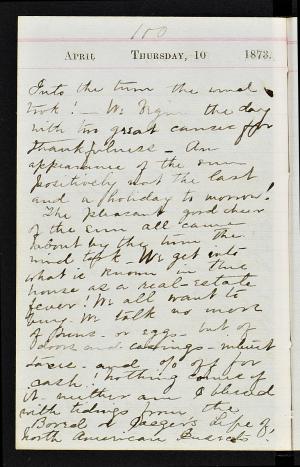 100
April Thursday, 10 1873.
Into the turn the wind
took! - We begin the day
with two great causes for
thankfulness - An
appearance of the sun
positively not the last
and a holiday to morrow!
The pleasant good cheer
of the sun all came
about by the turn the
wind took - We get into
what is known in this
house as a real-estate
fever! We all want to
buy. We talk no more
of buns - or eggs - but of
doors and casings -
taxes - and % off for
cash! Nothing comes of
it - neither am I blessed
with tidings from the
Bored or Jaeger's Life of
North American Insects.